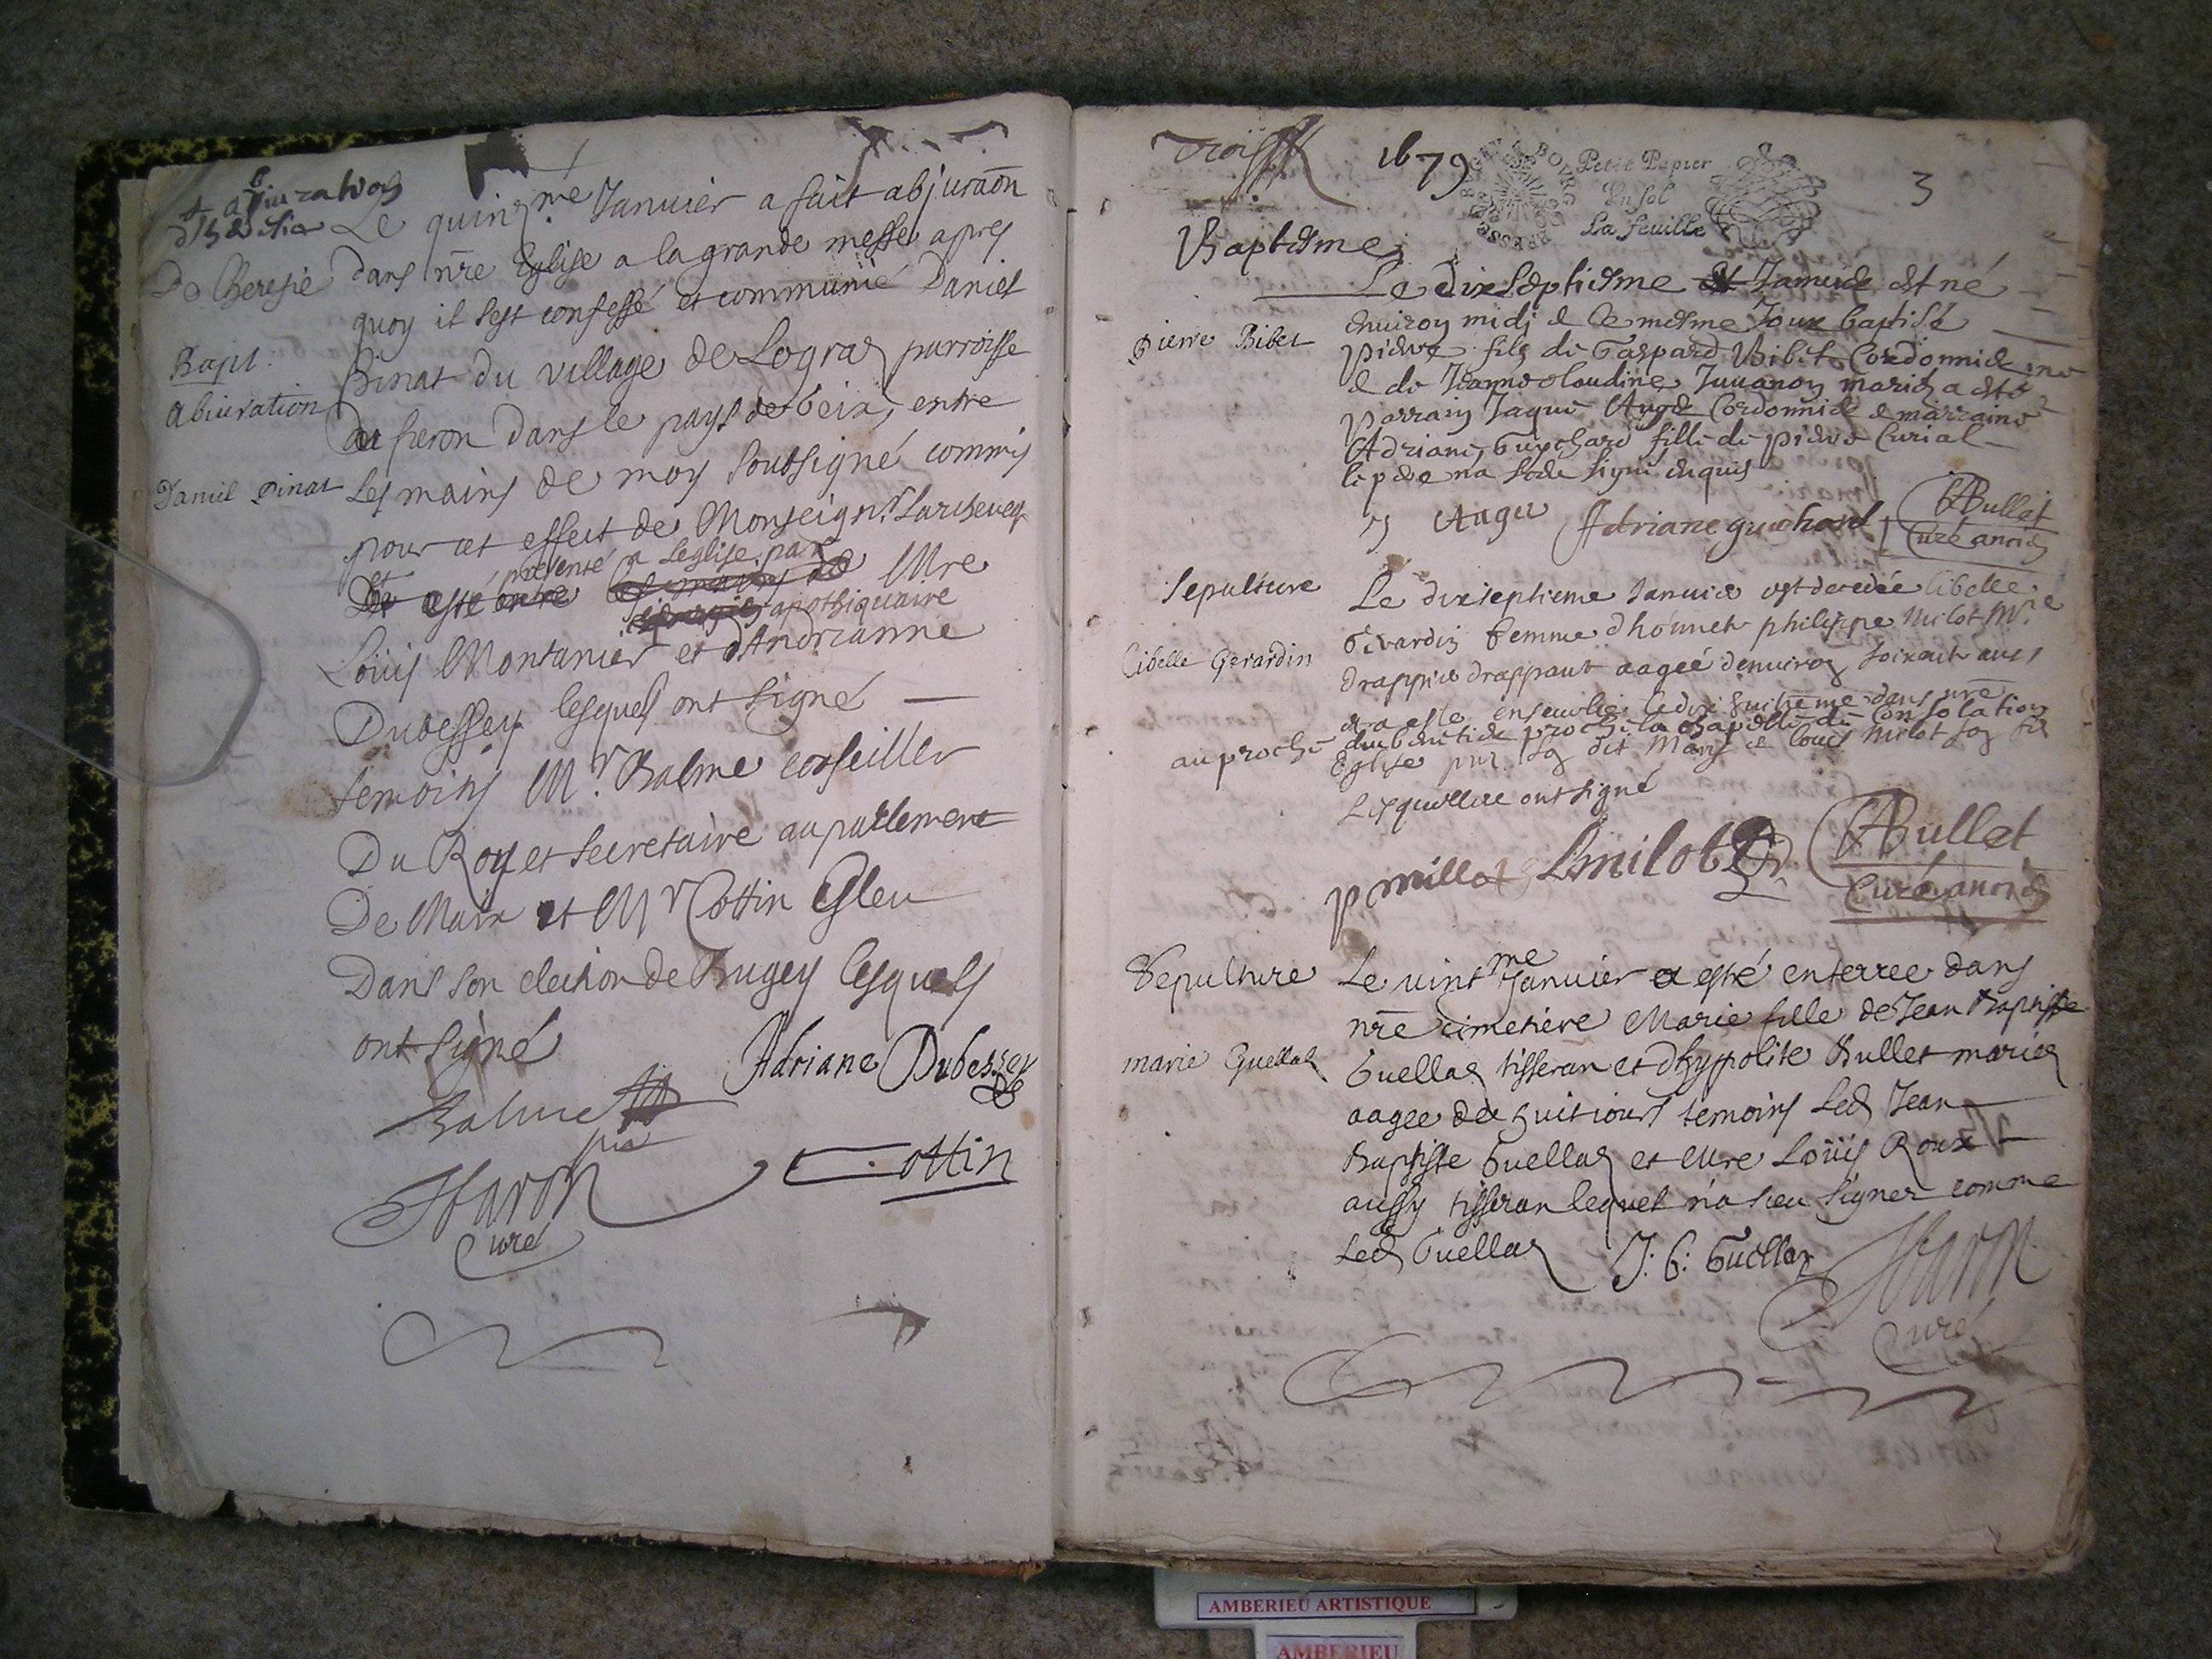 abjuration
Le quinzme Januier a fait abjuraon
De Cheresie
dans nre Eglise a la grande messe apres
quoy il sest confessé et communié Daniel
Bapt.
Pinat du village de Lograz parroisse
abiuration
de fieron dans le pays de Geix, entre
Daniel Pinat
Les mains de moy soubsigné commis
pour cet effect de Monseignr Larcheveq
presenté a leglise par
esté Mre
apothiquaire
Loüis Montanier et d'Andrianne
Dubessey lesquels ont signé
temoins Mr. Balme conseiller
Du Roy et secretaire au parlement
De et Mr Cottin Esleu
Dans son election de Bugey lesquels
ont signé
Adriane Dubessey
Balme
Cottin
Curé
1679
BOURG
Petit Papier
Un sol
La feuille
3
Baptesme
Le dixseptiesme Januier est né
enuiron midi & le mesme Jour baptisé
Pierre Bibet
pierre fils de Gaspard Bibet Cordonnier
& de Jeanne claudine Juuanon mariez a esté
parrain Jaque Auger Cordonnier & marraine
Adriane Guychard fille de pierre Curial
le pere na sceu signer enquis
J Auger Adriane guichard ABullet
Curé
Sepulture
Le dixseptieme Januier est decedée Cibelle
Girardin femme dhonnete philippe milot Mre
Cibelle Gerardin
drappier drappant aageé denuiron soixante ans
et a este enseuelie le dixhuitieme dans nre
au proche
proche la chapelle de Consolation
Eglise par son dit Mary et Louis milot son fils
Lesquels ont signé
p millot Lmilot ABullet
Curé
Sepulture
Le vintme Januier a esté enterree dans
nre cimetiere Marie fille de Jean Baptiste
marie Guellaz
Guellaz tisseran et dhyppolite Bullet mariez
aagee de huit iours temoins Led Jean
Baptiste Guellaz et Mre Loüis Roux
aussy tisseran lequel n'a sceu signer comme
Led Guellaz J. b. Guellaz
Curé
AMBERIEU ARTISTIQUE
AMBERIEU